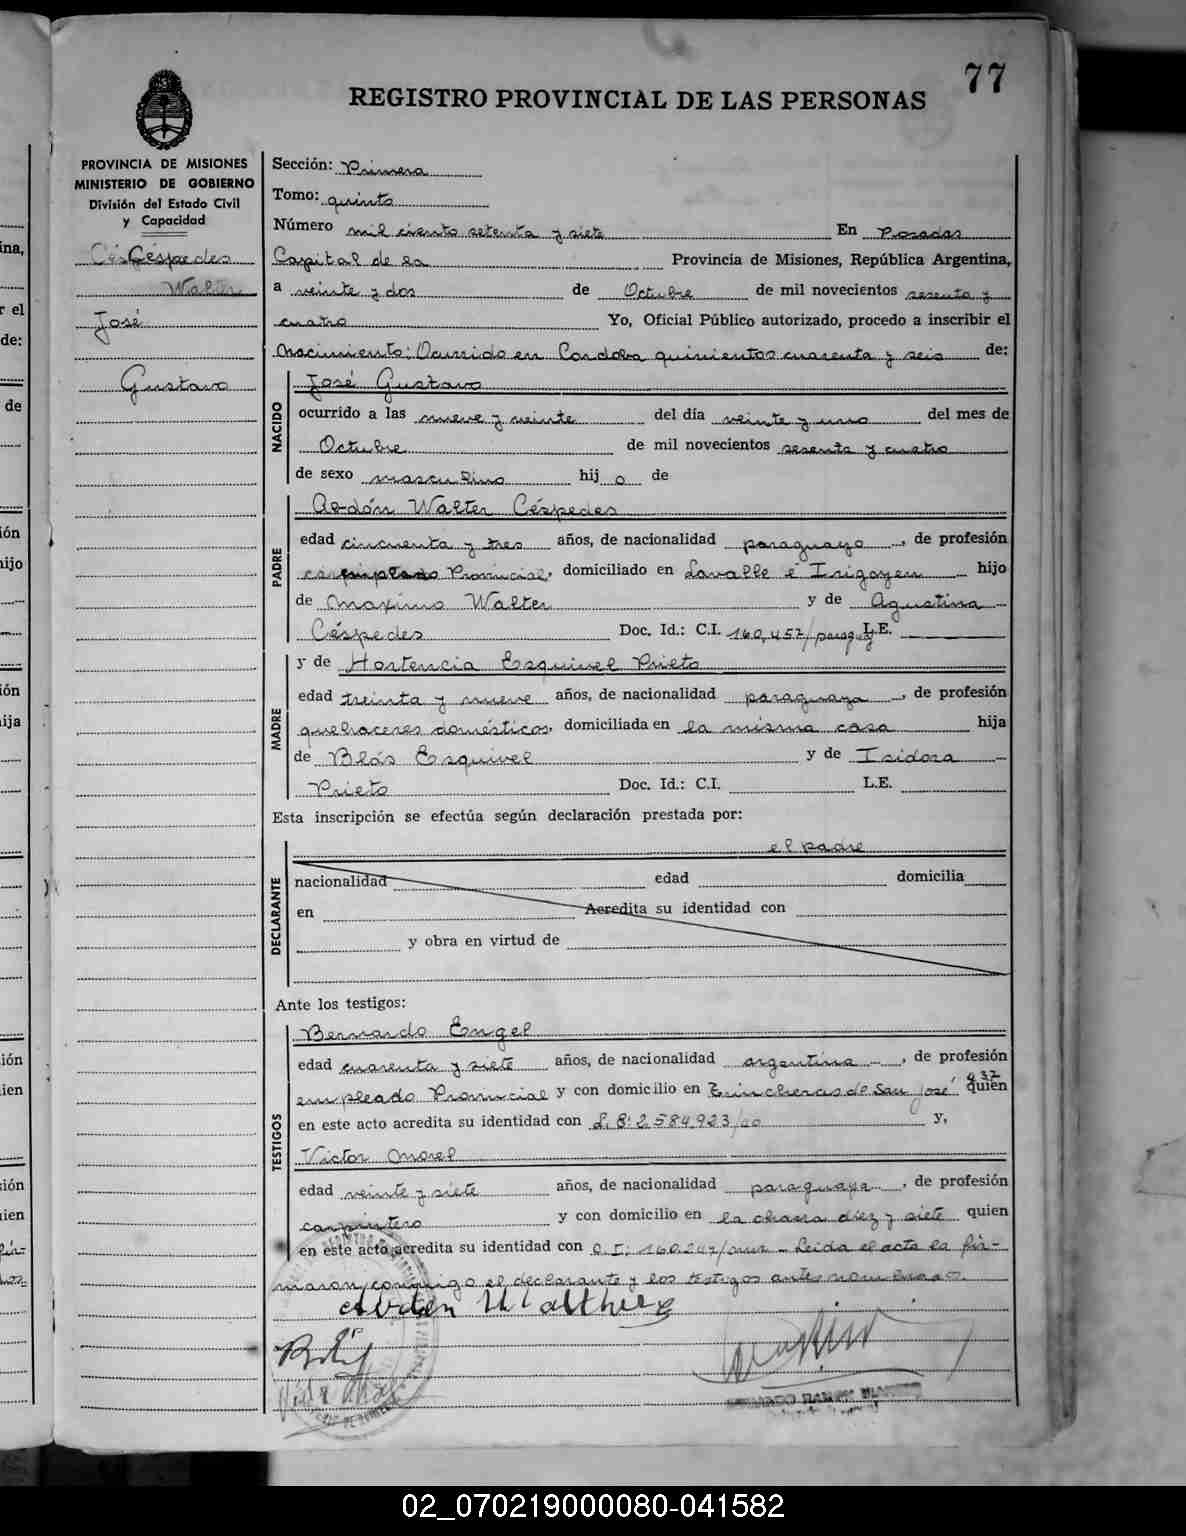 77
REGISTRO PROVINCIAL DE LAS PERSONAS
PROVINCIA DE MISIONES
MINISTERIO DE GOBIERNO
División del Estado Civil
y Capacidad
Céspedes
Walter
José
Gustavo
Sección: Primera
Tomo: quinto
Número mil ciento setenta y siete En Posadas
Capital de la Provincia de Misiones, República Argentina,
a veinte y dos de Octubre de mil novecientos sesenta y
cuatro Yo, Oficial Público autorizado, procedo a inscribir el
nacimiento: Ocurrido en Cordoba quinientos cuarenta y seis de:
NACIDO
José Gustavo
ocurrido a las nueve y veinte del día veinte y uno del mes de
Octubre de mil novecientos sesenta y cuatro
de sexo masculino hij o de
PADRE
Abdón Walter Céspedes
edad cincuenta y tres años, de nacionalidad paraguayo, de profesión
empleado Provincial, domiciliado en Lavalle é Irigoyen hijo
de Maximo Walter y de Agustina
Céspedes Doc. Id.: C.I. 160,457/paraguay L.E.
MADRE
y de Hortencia Esquivel Prieto
edad treinta y nueve años, de nacionalidad paraguaya, de profesión
quehaceres domésticos, domiciliada en la misma casa hija
de Blás Esquivel y de Isidora
Prieto Doc. Id.: C.I. L.E.
Esta inscripción se efectúa según declaración prestada por:
DECLARANTE
el padre
nacionalidad edad domicilia
en Acredita su identidad con
y obra en virtud de
Ante los testigos:
TESTIGOS
Bernardo Engel
edad cuarenta y siete años, de nacionalidad argentina, de profesión
empleado Provincial y con domicilio en Trincheras de San José 437 quien
en este acto acredita su identidad con 2.584.923 y,
Victor Morel
edad veinte y siete años, de nacionalidad paraguaya, de profesión
carpintero y con domicilio en la chacra diez y siete quien
en este acto acredita su identidad con C.I: 160.247 Leida el acta la fir-
maron conmigo el declarante y los testigos antes nombrados.
02_070219000080-041582